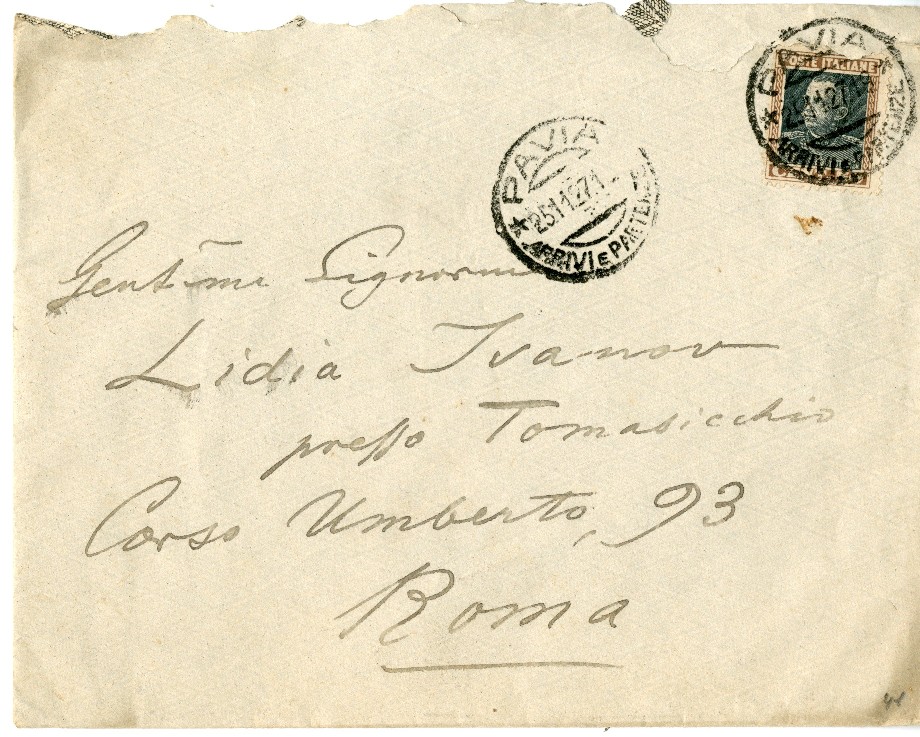 PAVIA
POSTE ITALIANE
ARRIVI E PARTENZE
PAVIA
25 11 27 1
ARRIVI E PARTENZE
Gent~ma Signorina
Lidia Ivanov
presso Tomasicchio
Corso Umberto, 93
Roma
44